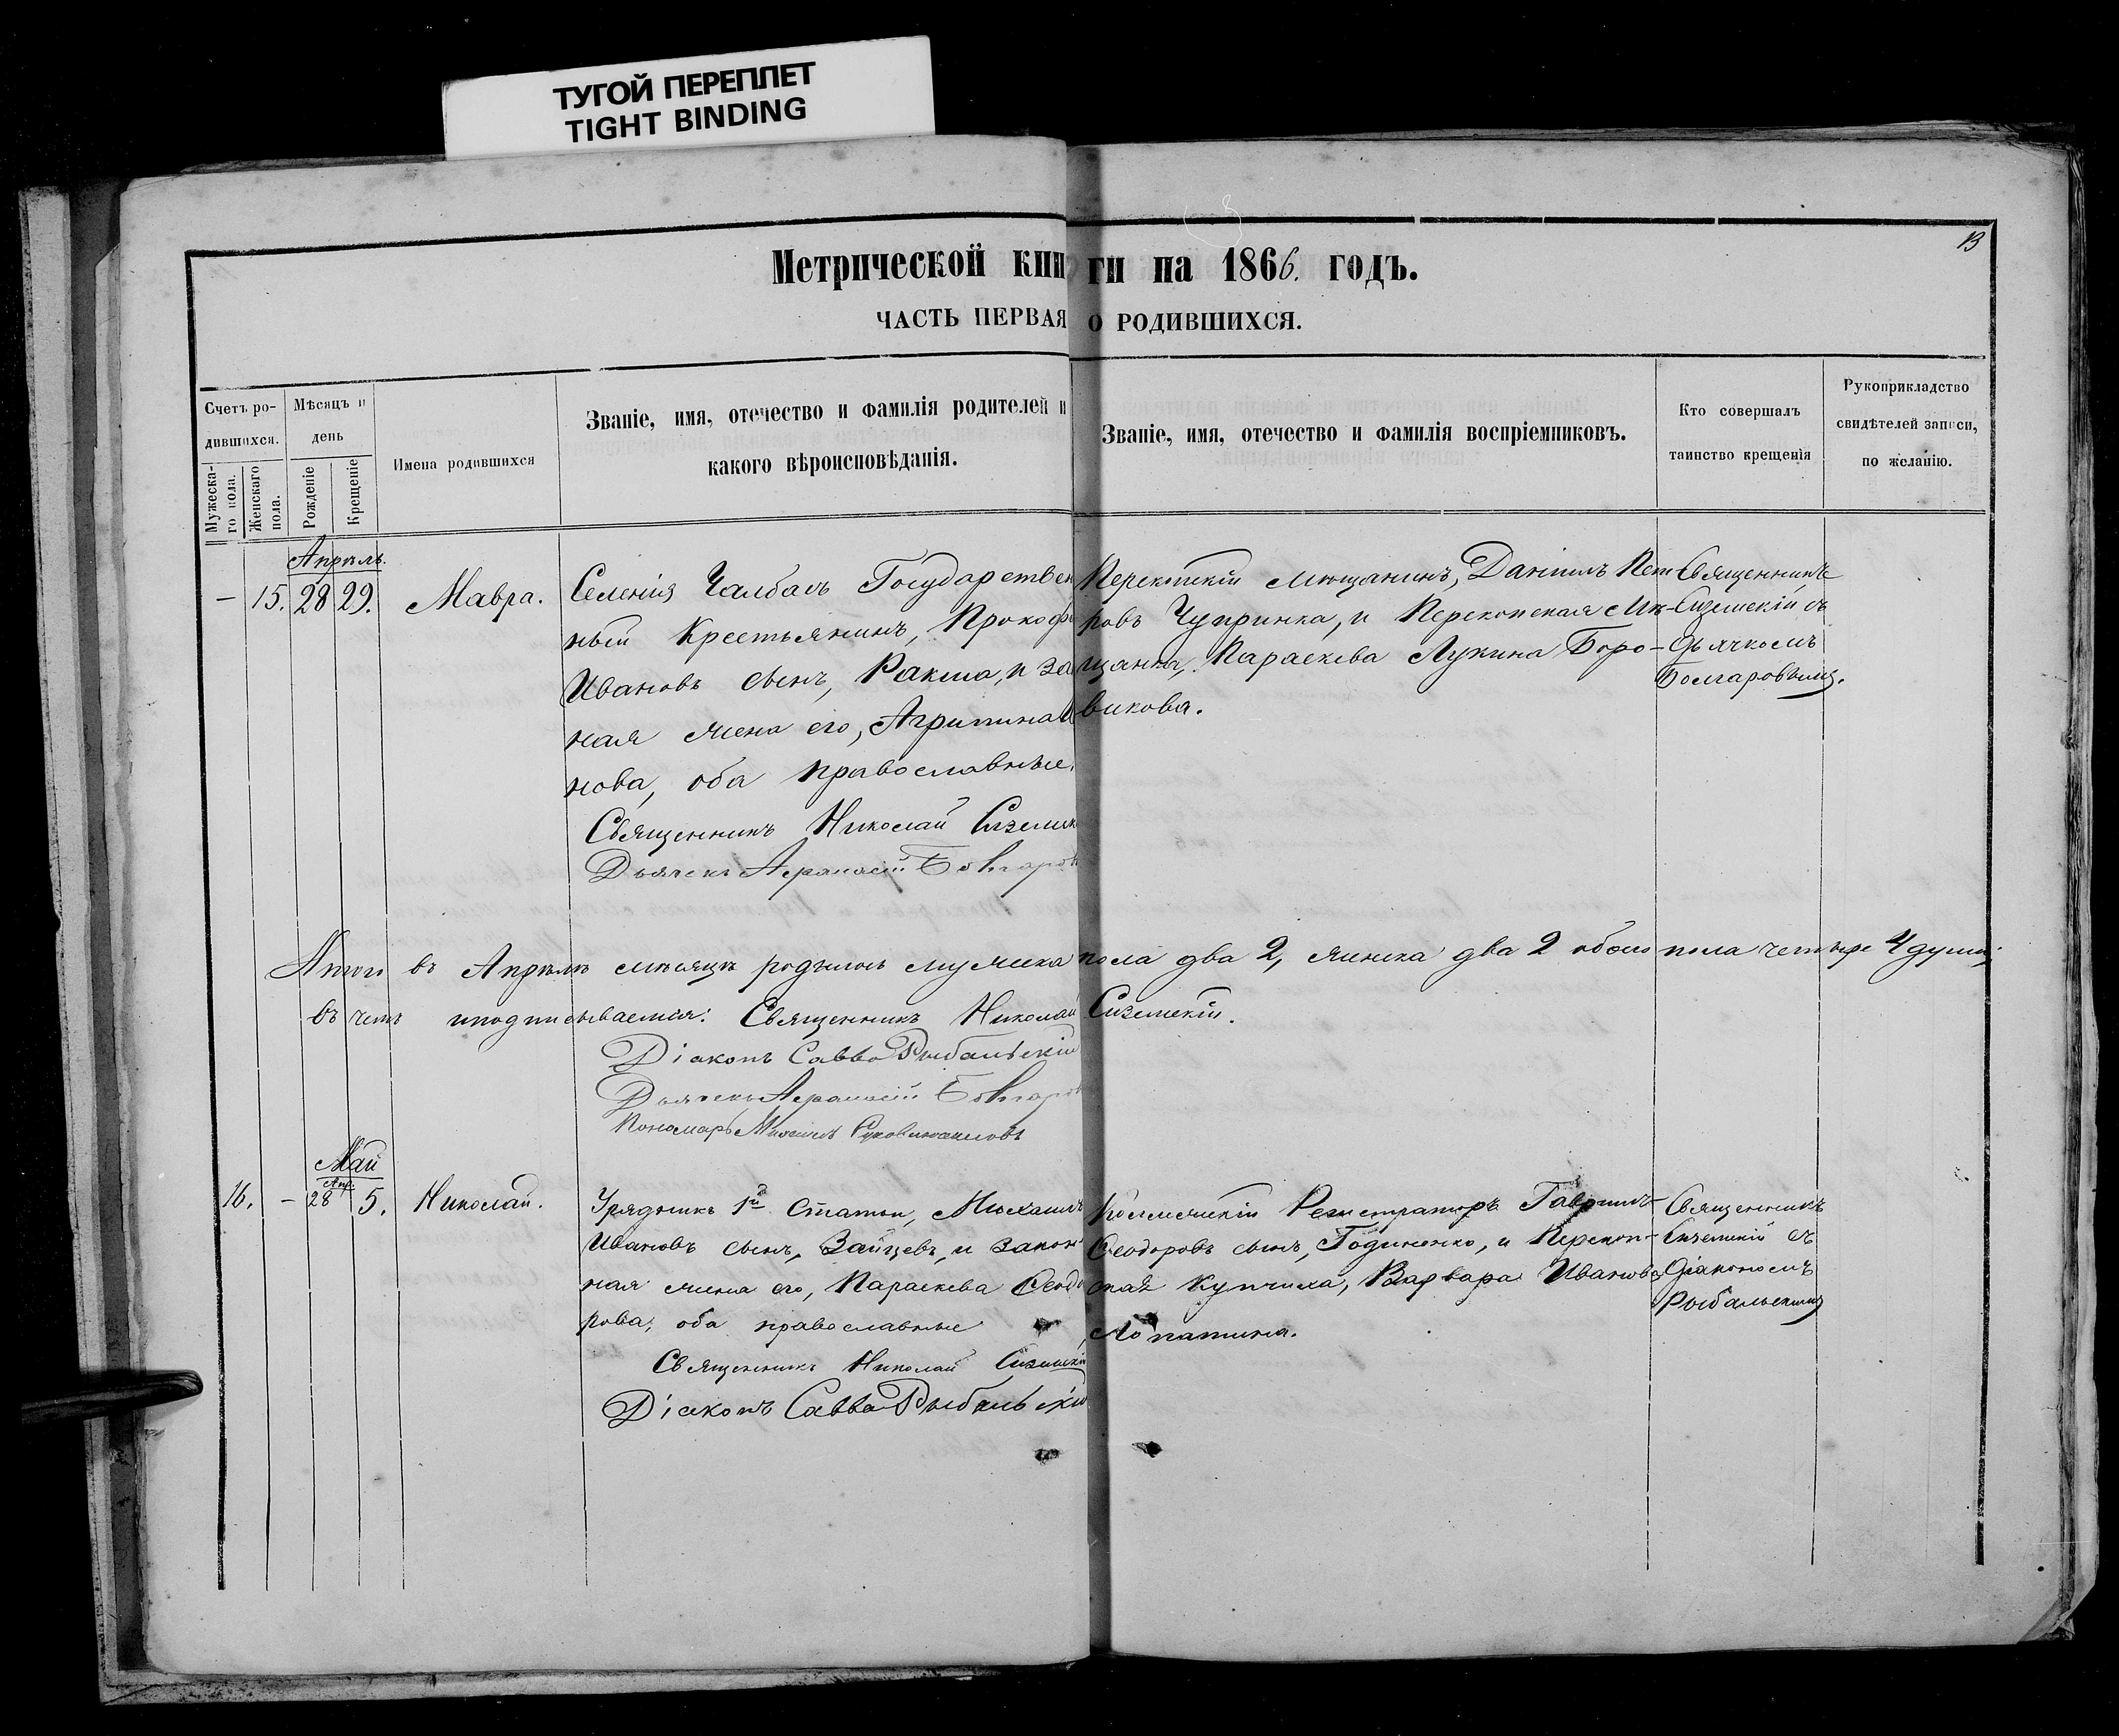 ТУГОЙ ПЕРЕПЛЕТ
TIGHT BINDING
13
Метрической книги на 1866. годъ.
ЧАСТЬ ПЕРВАЯ О РОДИВШИХСЯ.
Счетъ родившихся.
Мужескаго пола.
Женскаго пола.
Мѣсяцъ и день
Рожденіе
Крещеніе
Имена родившихся
Званіе, имя, отечество и фамилія родителей и
какого вѣроисповѣданія.
Званіе, имя, отечество и фамилія воспріемниковъ.
Кто совершалъ
таинство крещенія
Рукоприкладство
свидѣтелей записи,
по желанію.
Апрѣль.
— 15. 28 29. Мавра.
Селенія Чалбасъ Государствен
ный Крестьянинъ, Прокофі
Ивановъ сынъ, Ракша, и за
ная жена его, Агрипина
нова, оба православные.
Священникъ Николай
Дьячекъ Афанасій Болгаров
мѣщанинъ, Даніилъ Пет-
ровъ Чупринка, и Перекопская Мѣ-
щанка, Параскева Лукина Боро-
викова.
Священникъ
Сиземскій съ
Дьячкомъ
Болгаровымъ.
Итого въ Апрѣлѣ мѣсяцѣ родилось мужеска пола два 2, женска два 2 обоего пола четыре 4 души,
въ чемъ подписываемся: Священникъ Николай Сиземскій.
Діаконъ Савва Рыбальскій
Дьячекъ Афанасій Болгаров
Пономарь
Май
Апр.
16. — 28 5. Николай.
Урядникъ 1й Статьи, Михаилъ
Ивановъ сынъ, Зайцевъ, и закон
ная жена его, Параскева Феодо
рова, оба православные
Священникъ Николай Сиземскій
Діаконъ Савва Рыбальскій
Коллежскій Регистраторъ Гавріилъ
Феодоровъ сынъ, Годиненко, и Перекоп-
ская Купчиха, Варвара Иванова
Лопатина.
Священникъ
Сиземскій съ
Діакономъ
Рыбальскимъ